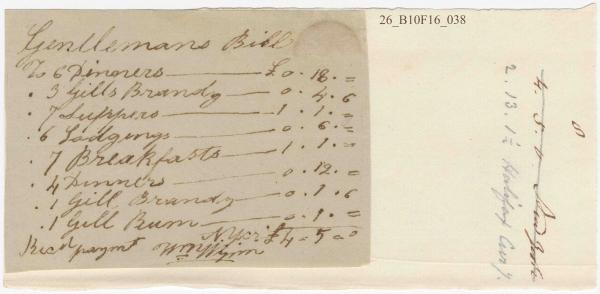 26_B10F16_038
Gentlemans Bill
To 6 Dinners — £0.18.=
. 3 Gills Brandy — 0.4.6
. 7 Suppers — 1.1.=
. 6 Lodgings — 0.6.=
. 7 Breakfasts — 1.1.=
. 4 Dinners — 0.12.=
. 1 Gill Brandy — 0.1.6
. 1 Gill Rum — 0.1.=
N Yor: £4=5=0
Rec'd paymt Wm Wynn
8
4. 5. 0 New York
2. 13. 1½ Halifax Curr'y.